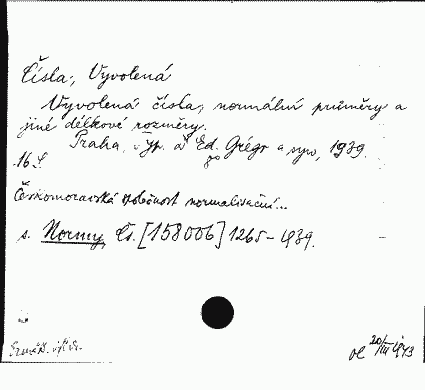 Čísla, Vyvolená
Vyvolená čísla, normální průměry a
jiné délkové rozměry.
Praha, Typ. a Ed. Grégr a syn, 1939.
16 s.
Českomoravská společnost normalisační...
s. Normy, čs. [158006] 1265-1939.
20/III 1943